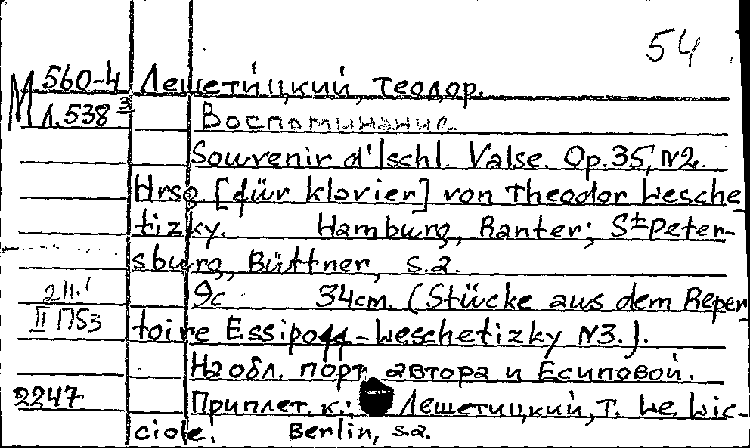 54
М 560-4 Лешетицкий, Теодор.
Л.538³ Воспоминание.
Souvenir d'Ischl. Valse. Op. 35, N2.
Hrsg [für Klavier] von Theodor Lesche
tizky. Hamburg, Ranter; St Peter-
sburg, Büttner, s.a.
9с 34cm. (Stücke aus dem Reper
II П53 toire Essipoff-Leschetizky N3.).
На обл. порт. автора и Есиповой.
2247 Приплет. к: Лешетицкий, Т. Le
ciole. Berlin, s.a.